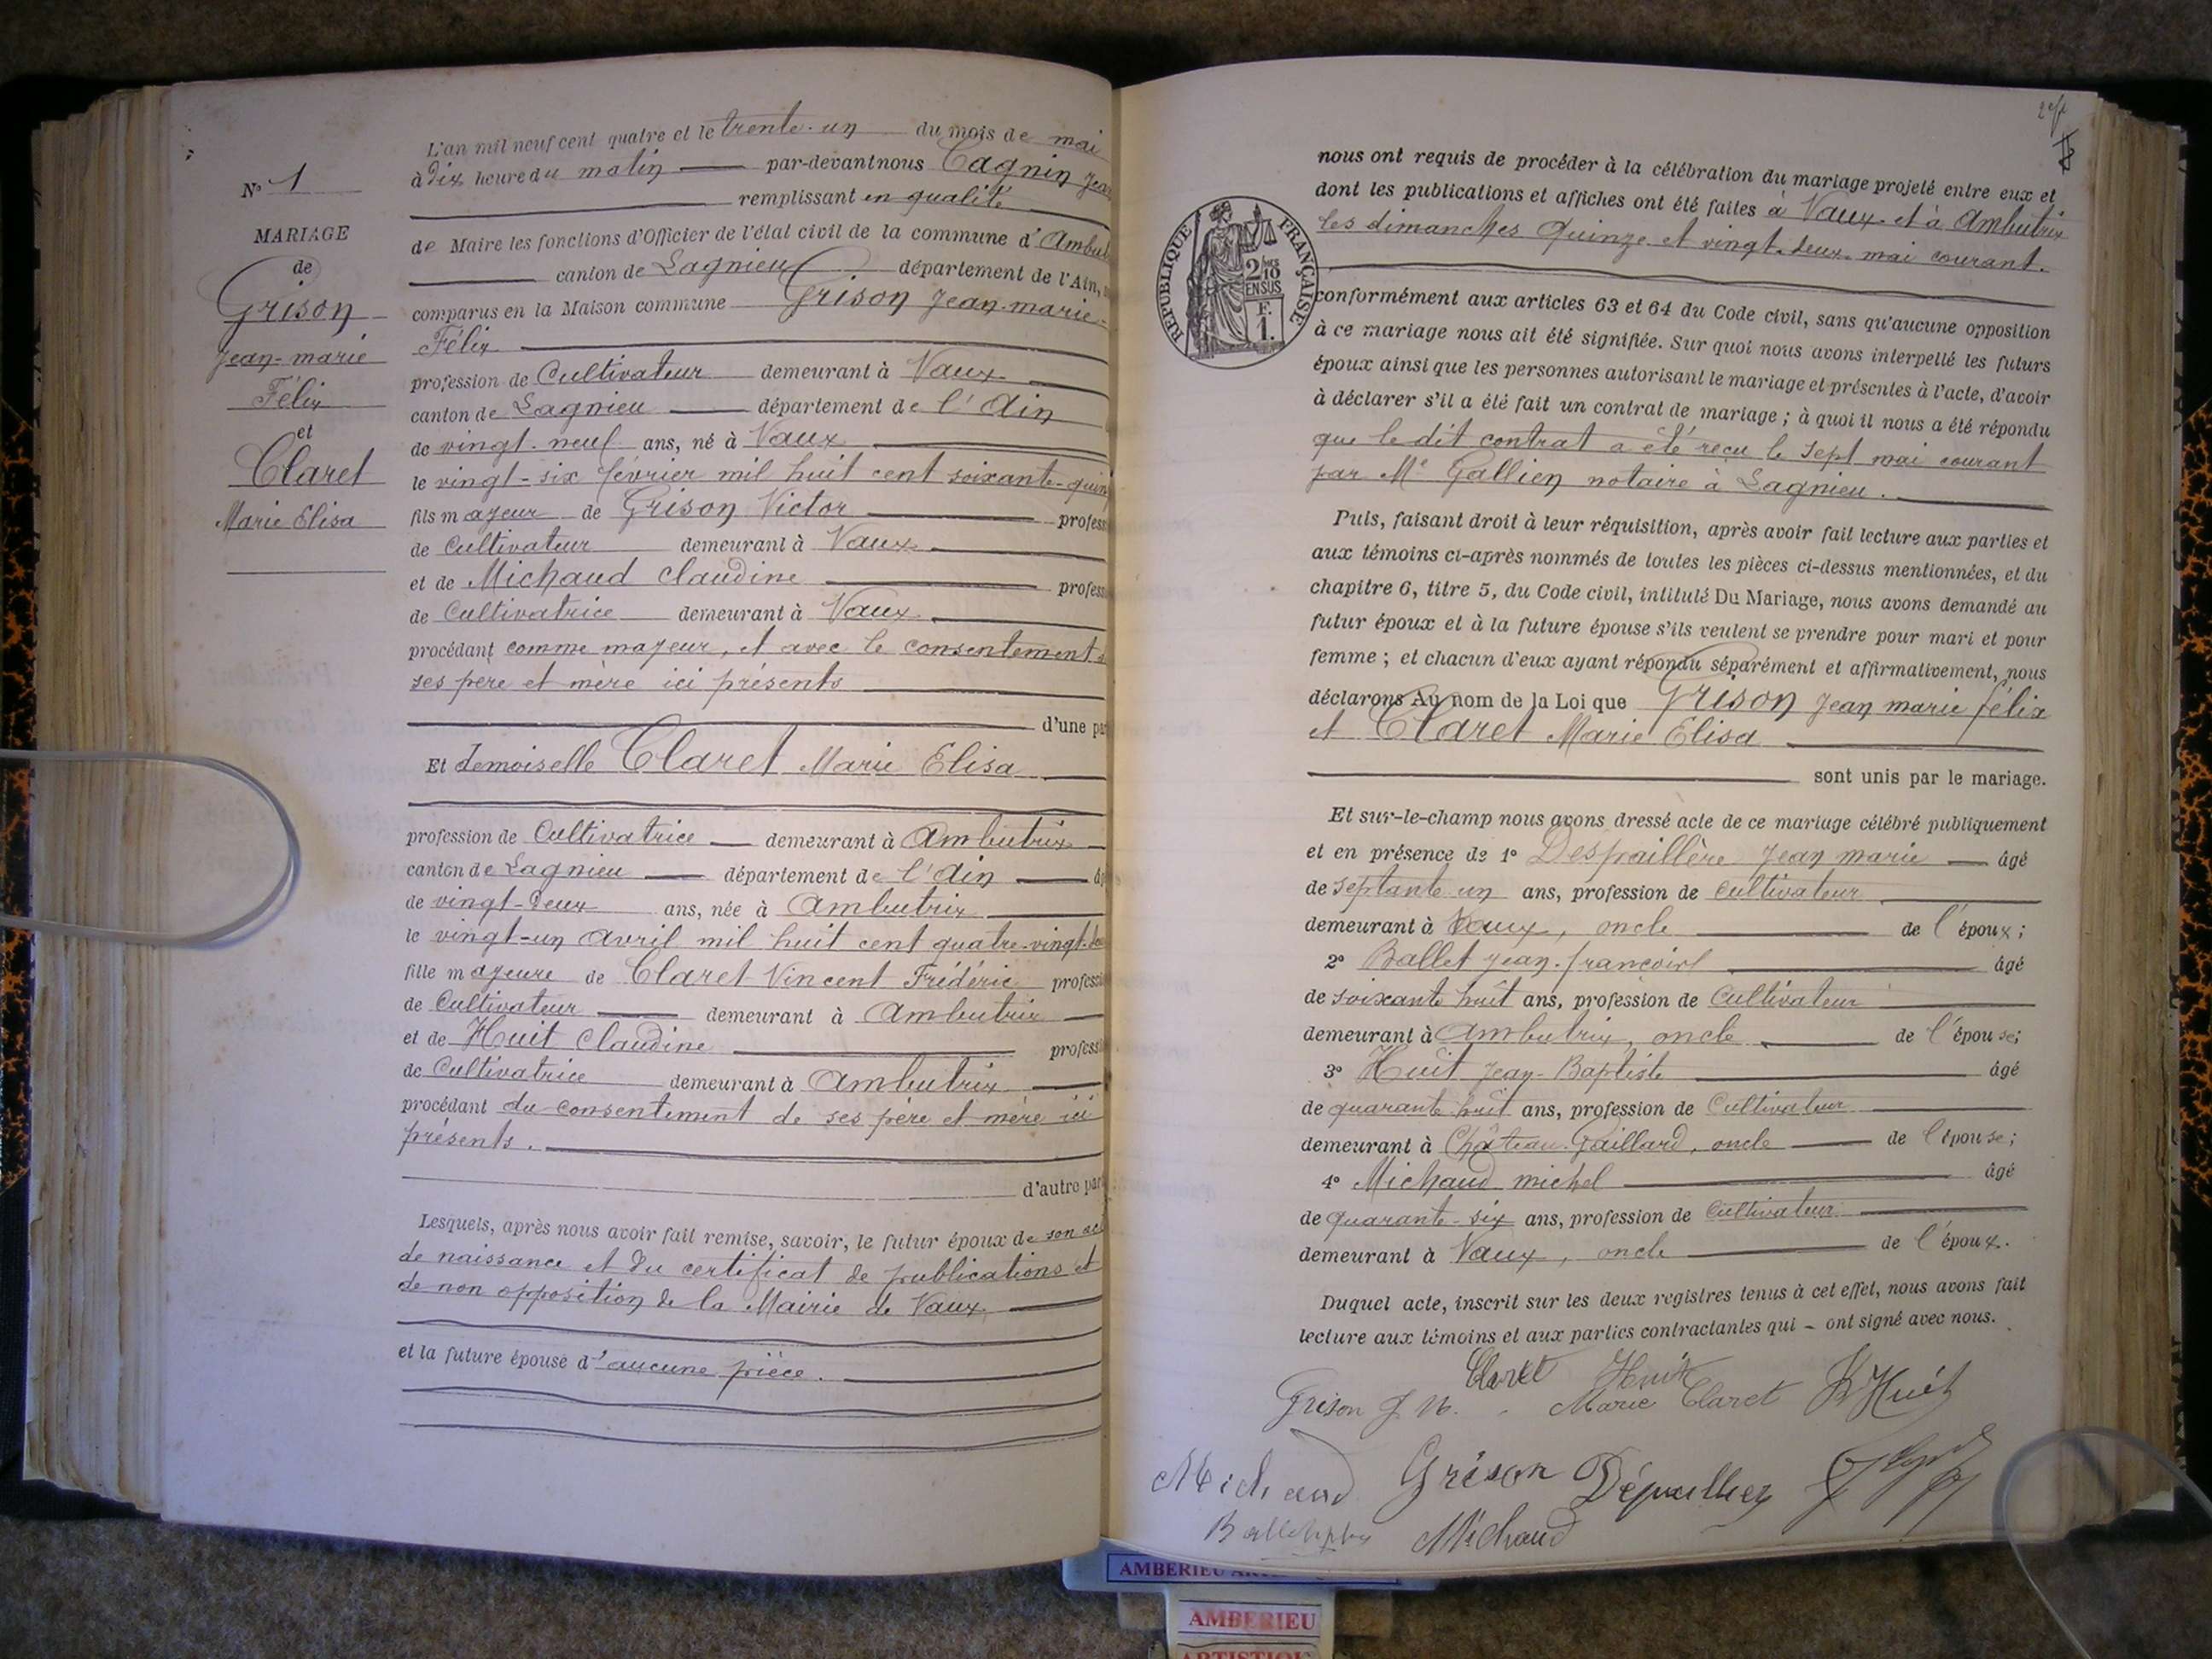 N° 1
MARIAGE
de
Grison
Jean-marie
Félix
et
Claret
Marie Elisa
L'an mil neuf cent quatre et le trente-un du mois de mai
à dix heure du matin par-devant nous Cagnin Jean
remplissant en qualité
de Maire les fonctions d'Officier de l'état civil de la commune d'Ambut
canton de Lagnieu département de l'Ain,
comparus en la Maison commune Grison Jean-marie-
Félix
profession de Cultivateur demeurant à Vaux
canton de Lagnieu département de l'Ain
de vingt-neuf ans, né à Vaux
le vingt-six février mil huit cent soixante-quin
fils majeur de Grison Victor profess
de Cultivateur demeurant à Vaux
et de Michaud Claudine profess
de Cultivatrice demeurant à Vaux
procédant comme majeur, et avec le consentement d
ses père et mère ici présents
d'une par
Et demoiselle Claret Marie Elisa
profession de Cultivatrice demeurant à Ambutrix
canton de Lagnieu département de l'Ain âg
de vingt-deux ans, née à Ambutrix
le vingt-un avril mil huit cent quatre-vingt-deu
fille majeure de Claret Vincent Frédéric professi
de Cultivateur demeurant à Ambutrix
et de Huit Claudine professi
de Cultivatrice demeurant à Ambutrix
procédant du consentement de ses père et mère ici
présents.
d'autre part
Lesquels, après nous avoir fait remise, savoir, le futur époux de son ac
de naissance et du certificat de publications et
de non opposition de la Mairie de Vaux
et la future épouse d'aucune pièce.
RÉPUBLIQUE FRANÇAISE
2/10
EN SUS
F.
1.
nous ont requis de procéder à la célébration du mariage projeté entre eux et
dont les publications et affiches ont été faites à Vaux et à Ambutrix
les dimanches quinze et vingt-deux mai courant.
conformément aux articles 63 et 64 du Code civil, sans qu'aucune opposition
à ce mariage nous ait été signifiée. Sur quoi nous avons interpellé les futurs
époux ainsi que les personnes autorisant le mariage et présentes à l'acte, d'avoir
à déclarer s'il a été fait un contrat de mariage ; à quoi il nous a été répondu
que le dit contrat a été reçu le sept mai courant
par Me Gallien notaire à Lagnieu.
Puis, faisant droit à leur réquisition, après avoir fait lecture aux parties et
aux témoins ci-après nommés de toutes les pièces ci-dessus mentionnées, et du
chapitre 6, titre 5, du Code civil, intitulé Du Mariage, nous avons demandé au
futur époux et à la future épouse s'ils veulent se prendre pour mari et pour
femme ; et chacun d'eux ayant répondu séparément et affirmativement, nous
déclarons Au nom de la Loi que Grison Jean marie félix
et Claret Marie Elisa
sont unis par le mariage.
Et sur-le-champ nous avons dressé acte de ce mariage célébré publiquement
et en présence de 1° Despaillère Jean marie âgé
de septante un ans, profession de cultivateur
demeurant à Vaux, oncle de l'époux ;
2° Ballet Jean-françois âgé
de soixante huit ans, profession de Cultivateur
demeurant à Ambutrix, oncle de l'épouse;
3° Huit Jean-Baptiste âgé
de quarante huit ans, profession de Cultivateur
demeurant à Château-Gaillard, oncle de l'épouse ;
4° Michaud michel âgé
de quarante-six ans, profession de Cultivateur
demeurant à Vaux, oncle de l'époux.
Duquel acte, inscrit sur les deux registres tenus à cet effet, nous avons fait
lecture aux témoins et aux parties contractantes qui - ont signé avec nous.
Claret Huit
Grison J M. Marie Claret Huit
Michaud Grison
Michaud
AMBERIEU
AMBERIEU